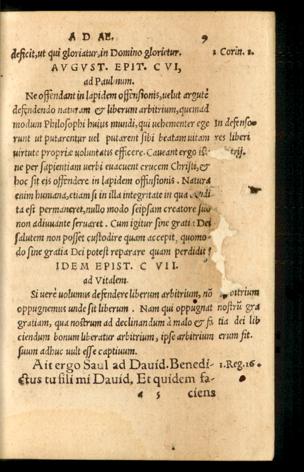 A D Æ. 9
deficit, ut qui gloriatur, in Domino glorietur. 1 Corin. 1.
AVGVST. EPIT. CVI,
ad Paulinum.
Ne offendant in lapidem offensionis, uelut argutè
defendendo naturam & liberum arbitrium, quemad
modum Philosophi huius mundi, qui uehementer ege In defenso
runt ut putarentur uel putarent sibi beatam uitam res liberi
uirtute propriæ voluntatis efficere. Caueant ergo ist
ne per sapientiam uerbi euacuent crucem Christi, &
hoc sit eis offendere in lapidem offensionis. Natura
enim humana, etiam si in illa integritate in qua
ta est permaneret, nullo modo seipsam creatore suo
non adiuuante seruaret. Cum igitur sine gratia Dei
salutem non posset custodire quam accepit, quomo-
do sine gratia Dei potest reparare quam perdidit?
IDEM EPIST. C VII.
ad Vitalem.
Si uerè uolumus defendere liberum arbitrium, nõ
oppugnemus unde sit liberum. Nam qui oppugnat nostrũ gra
gratiam, qua nostrum ad declinandum à malo & fa tia dei lib
ciendum bonum liberatur arbitrium, ipse arbitrium erum fit.
suum adhuc uult esse captiuum.
Ait ergo Saul ad Dauid. Benedi- 1. Reg. 16.
ctus tu fili mi Dauid, Et quidem fa-
a 5 ciens